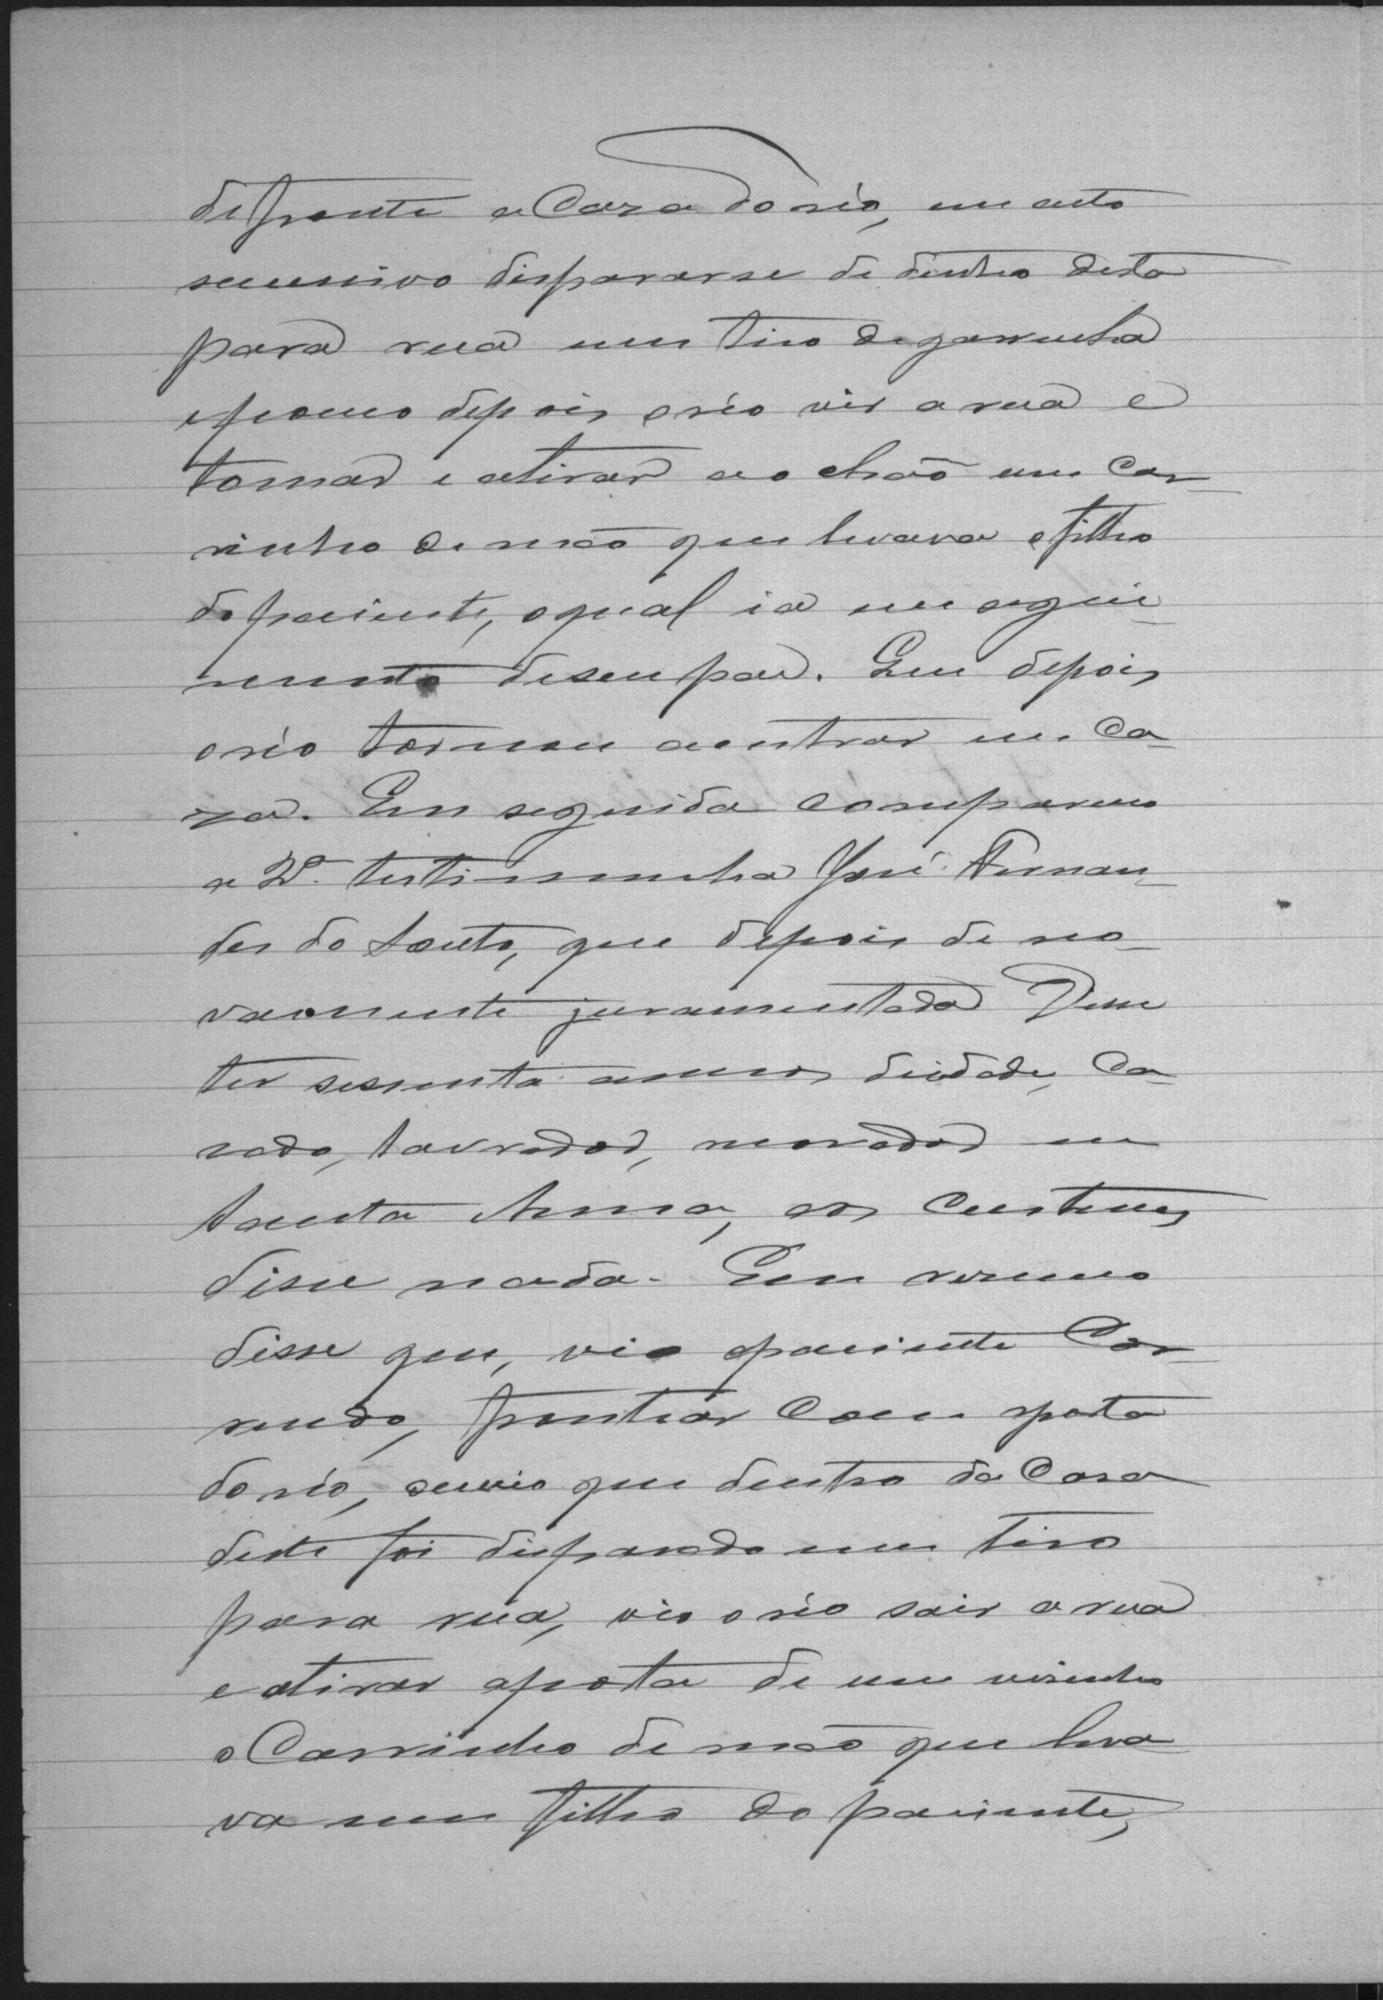 defronte a Caza do réo, em acto
sucessivo dispararse de dentro desta
para rua um tiro de garrucha
e pouco depois o réo vir a rua e
tomar e atirar ao chão um car-
rinho de mão que levava o filho
do paciente, o qual ia em segui-
mento de seu pae. Que depois
o réo tornou a entrar em ca-
za. Em seguida compareceu
a 2ª testimunha José Fernan-
des do Souto, que depois de no-
vamente juramentada Disse
ter sessenta annos de idade, ca-
zado, lavrador, morador em
Santa Anna, aos custumes
disse nada. Em resumo
disse que, vio o paciente Cor-
rendo, frontiar com a porta
do réo, ouvio que dentro da Casa
deste foi disparado um tiro
para rua, vio o réo sair a rua
e atirar a porta de um visinho
o Carrinho de mão que leva
va um filho do paciente,